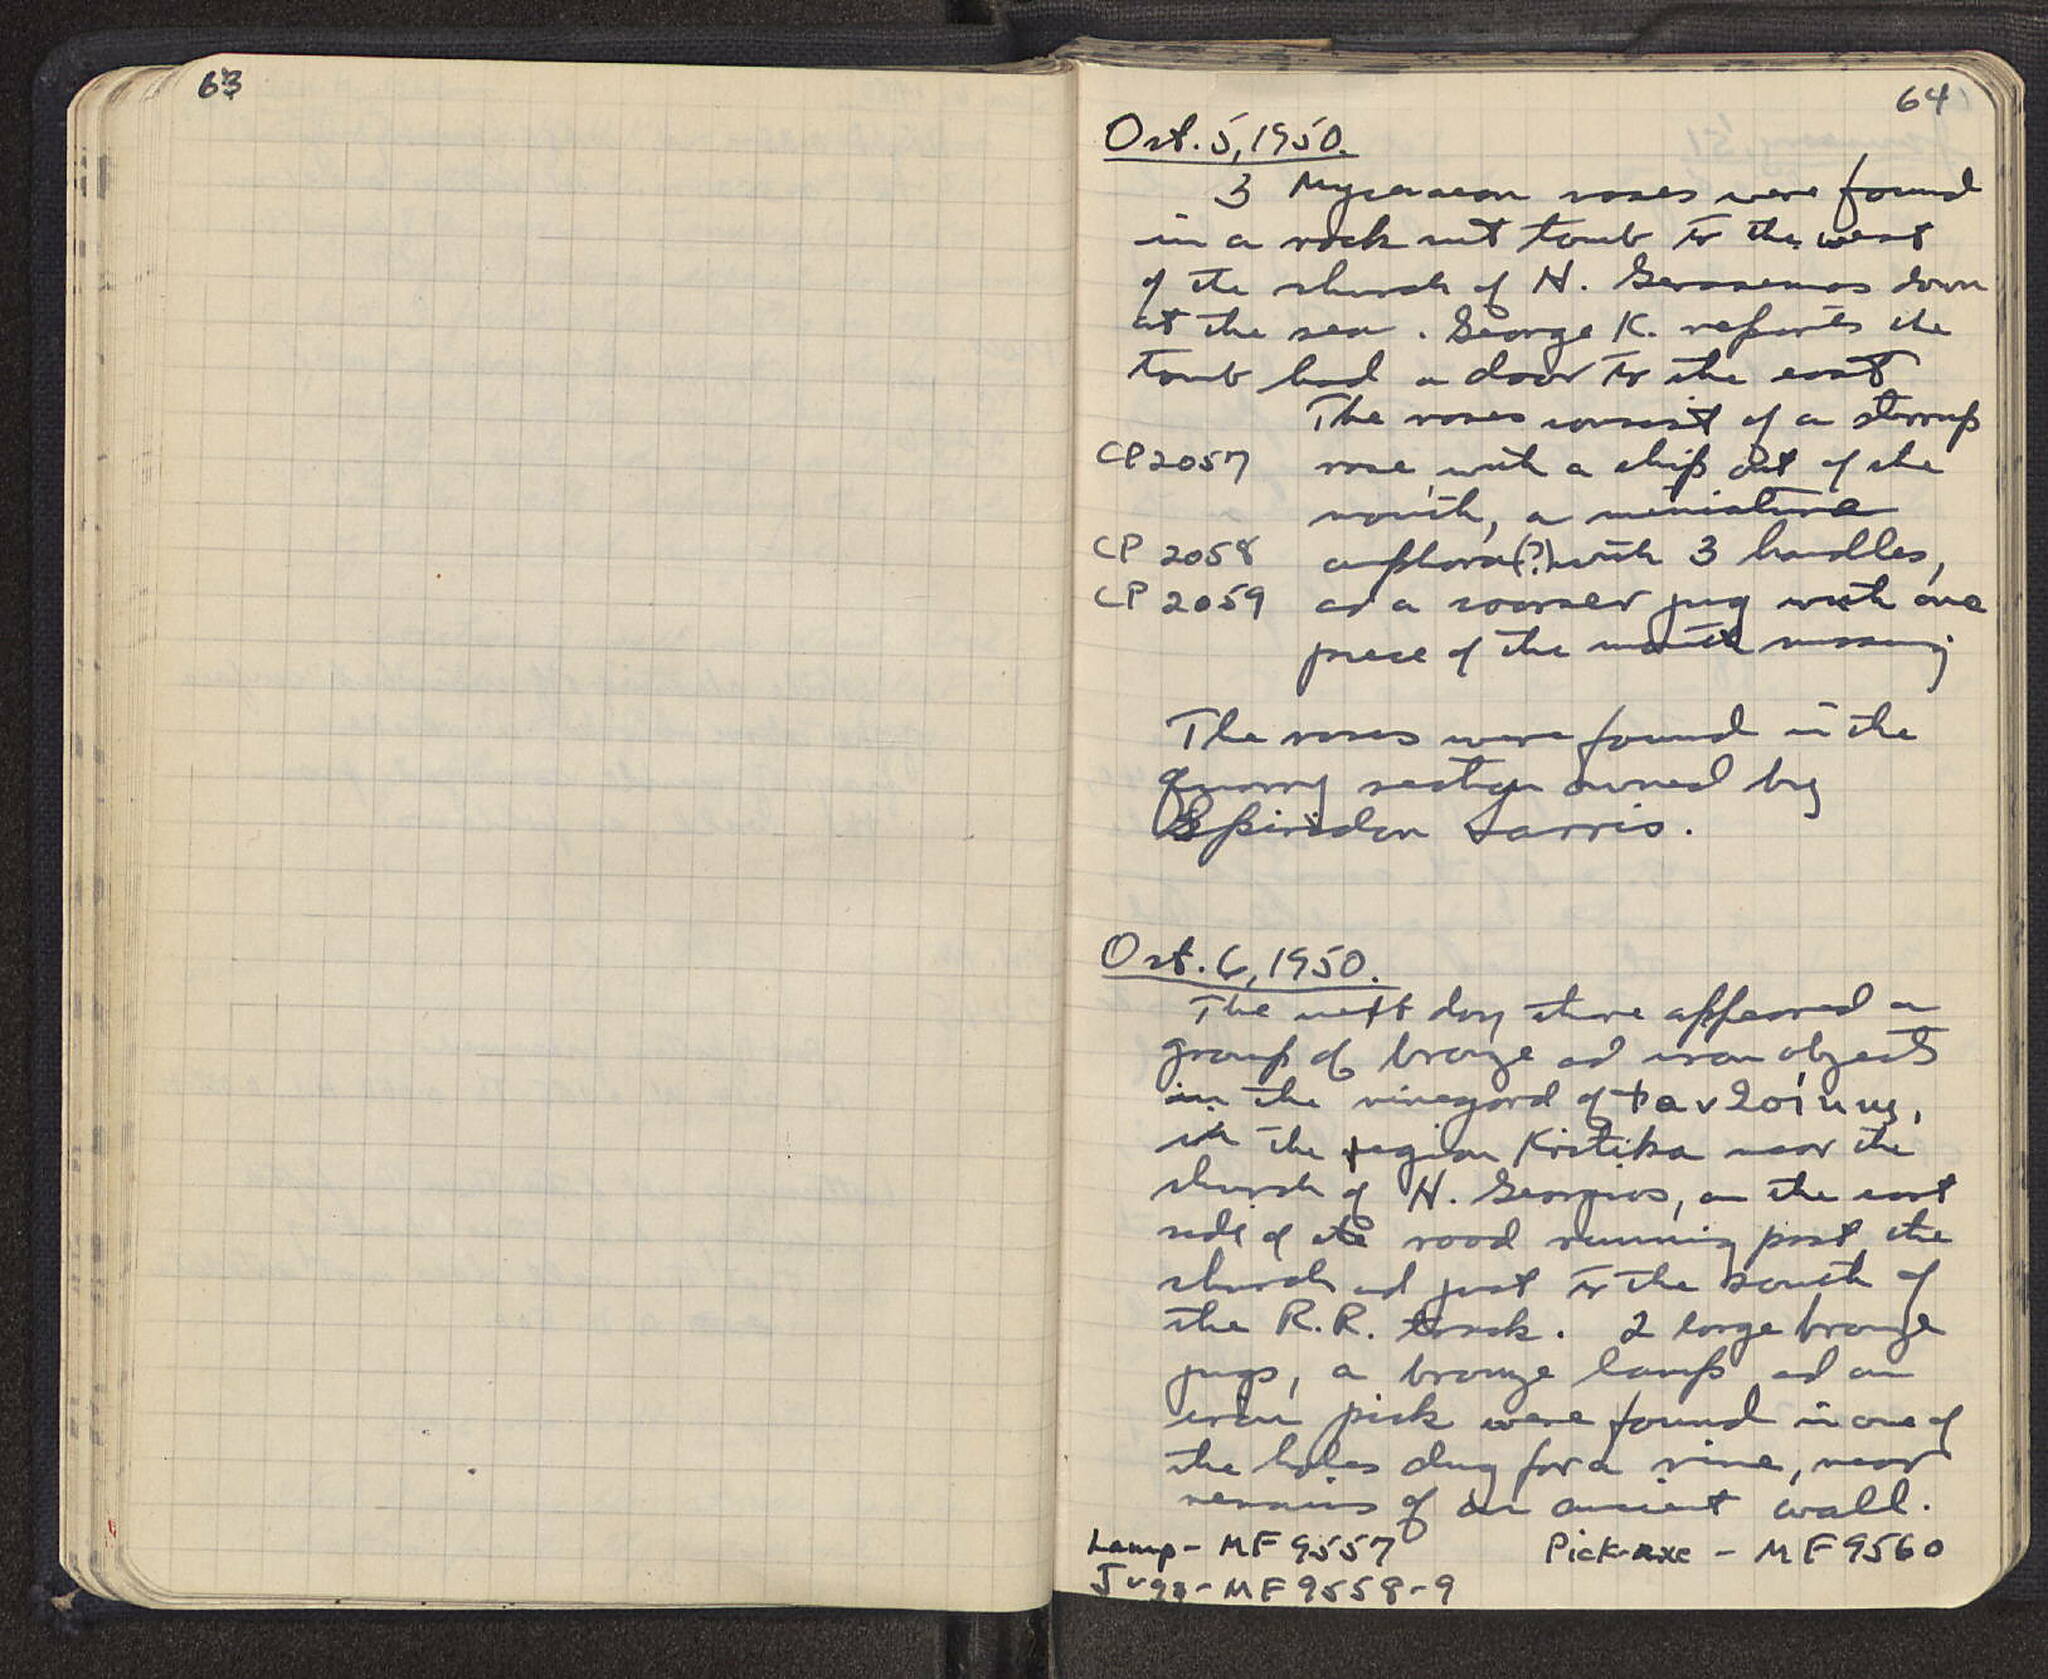 63
64
Oct. 5, 1950.
3 Mycenaean vases were found
in a rock cut tomb to the west
of the church of H. Gerasemos down
at the sea. George K. reports the
tomb had a door to the east
The vases consist of a stirrup
CP 2057 vase, with a chip out of the
mouth, a miniature
CP 2058 amphora(?) with 3 handles,
CP 2059 ad a coarser jug with one
piece of the mouth missing
The vases were found in the
quarry section owned by
Spiridon Sarris.
Oct. 6, 1950.
The next day there appeared a
group of bronze ad iron objects
in the vineyard of
in the region Kritika near the
church of H. Georgios, on the east
side of the road running past the
church ad just to the south of
the R.R. track. 2 large bronze
jugs, a bronze lamp ad an
iron pick were found in one of
the holes dug for a vine, near
remains of an ancient wall.
Lamp - MF 9557 Pick-axe - MF 9560
Jugs - MF 9558-9